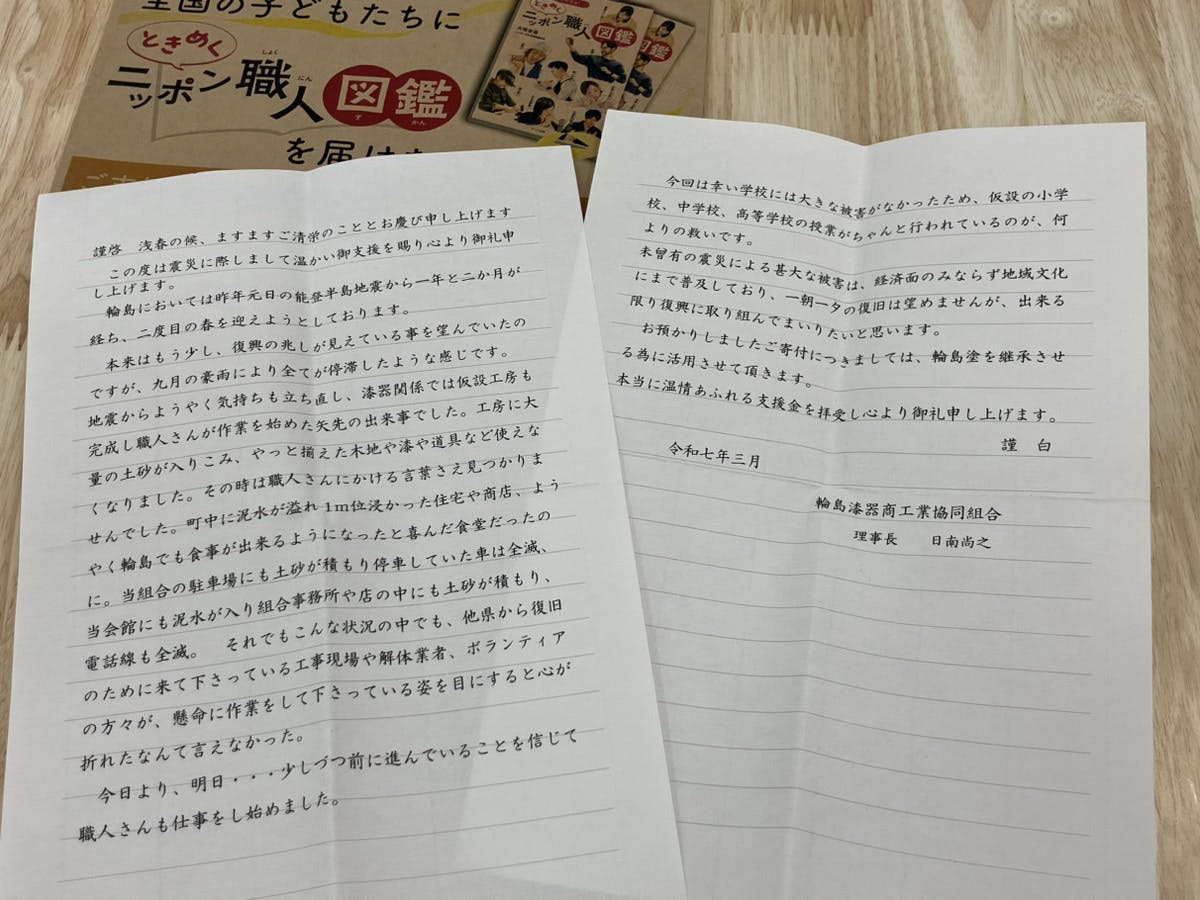 全国の子どもたちに
ときめく
ニッポン職人図鑑
しょく にん ず かん
を届け
ニッポン職人図鑑
図鑑
謹啓　浅春の候、ますますご清栄のこととお慶び申し上げます
この度は震災に際しまして温かい御支援を賜り心より御礼申
し上げます。
輪島においては昨年元日の能登半島地震から一年と二か月が
経ち、二度目の春を迎えようとしております。
本来はもう少し、復興の兆しが見えている事を望んでいたの
ですが、九月の豪雨により全てが停滞したような感じです。
地震からようやく気持ちも立ち直し、漆器関係では仮設工房も
完成し職人さんが作業を始めた矢先の出来事でした。工房に大
量の土砂が入りこみ、やっと揃えた木地や漆や道具など使えな
くなりました。その時は職人さんにかける言葉さえ見つかりま
せんでした。町中に泥水が溢れ1m位浸かった住宅や商店、よう
やく輪島でも食事が出来るようになったと喜んだ食堂だったの
に。当組合の駐車場にも土砂が積もり停車していた車は全滅、
当会館にも泥水が入り組合事務所や店の中にも土砂が積もり、
電話線も全滅。　それでもこんな状況の中でも、他県から復旧
のために来て下さっている工事現場や解体業者、ボランティア
の方々が、懸命に作業をして下さっている姿を目にすると心が
折れたなんて言えなかった。
今日より、明日・・・少しづつ前に進んでいることを信じて
職人さんも仕事をし始めました。
今回は幸い学校には大きな被害がなかったため、仮設の小学
校、中学校、高等学校の授業がちゃんと行われているのが、何
よりの救いです。
未曾有の震災による甚大な被害は、経済面のみならず地域文化
にまで普及しており、一朝一夕の復旧は望めませんが、出来る
限り復興に取り組んでまいりたいと思います。
お預かりしましたご寄付につきましては、輪島塗を継承させ
る為に活用させて頂きます。
本当に温情あふれる支援金を拝受し心より御礼申し上げます。
謹　白
令和七年三月
輪島漆器商工業協同組合
理事長　日南尚之